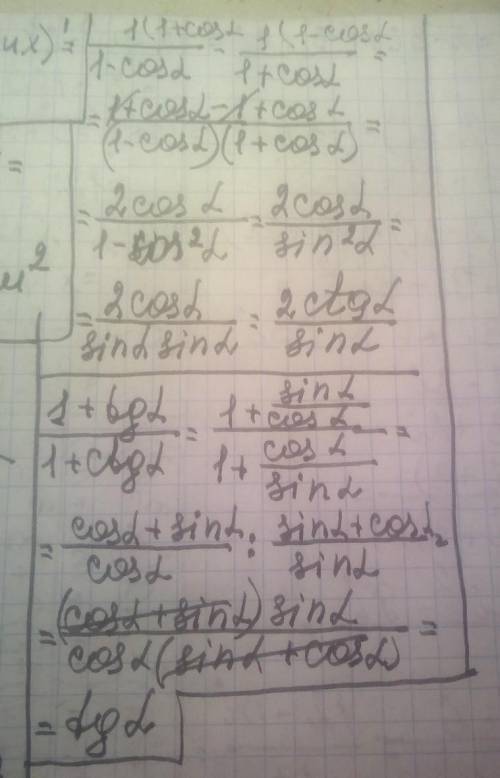 их) = 1(1+cosα / 1-cosα - 1(1-cosα / 1+cosα =
= 1+cosα-1+cosα / (1-cosα)(1+cosα) =
= 2cosα / 1-cos²α = 2cosα / sin²α =
= 2cosα / sinα sinα = 2ctgα / sinα
=
м²
1+tgα / 1+ctgα = 1+ sinα/cosα / 1+ cosα/sinα =
= cosα+sinα / cosα : sinα+cosα / sinα =
= (cosα+sinα) sinα / cosα(sinα+cosα) =
= tgα